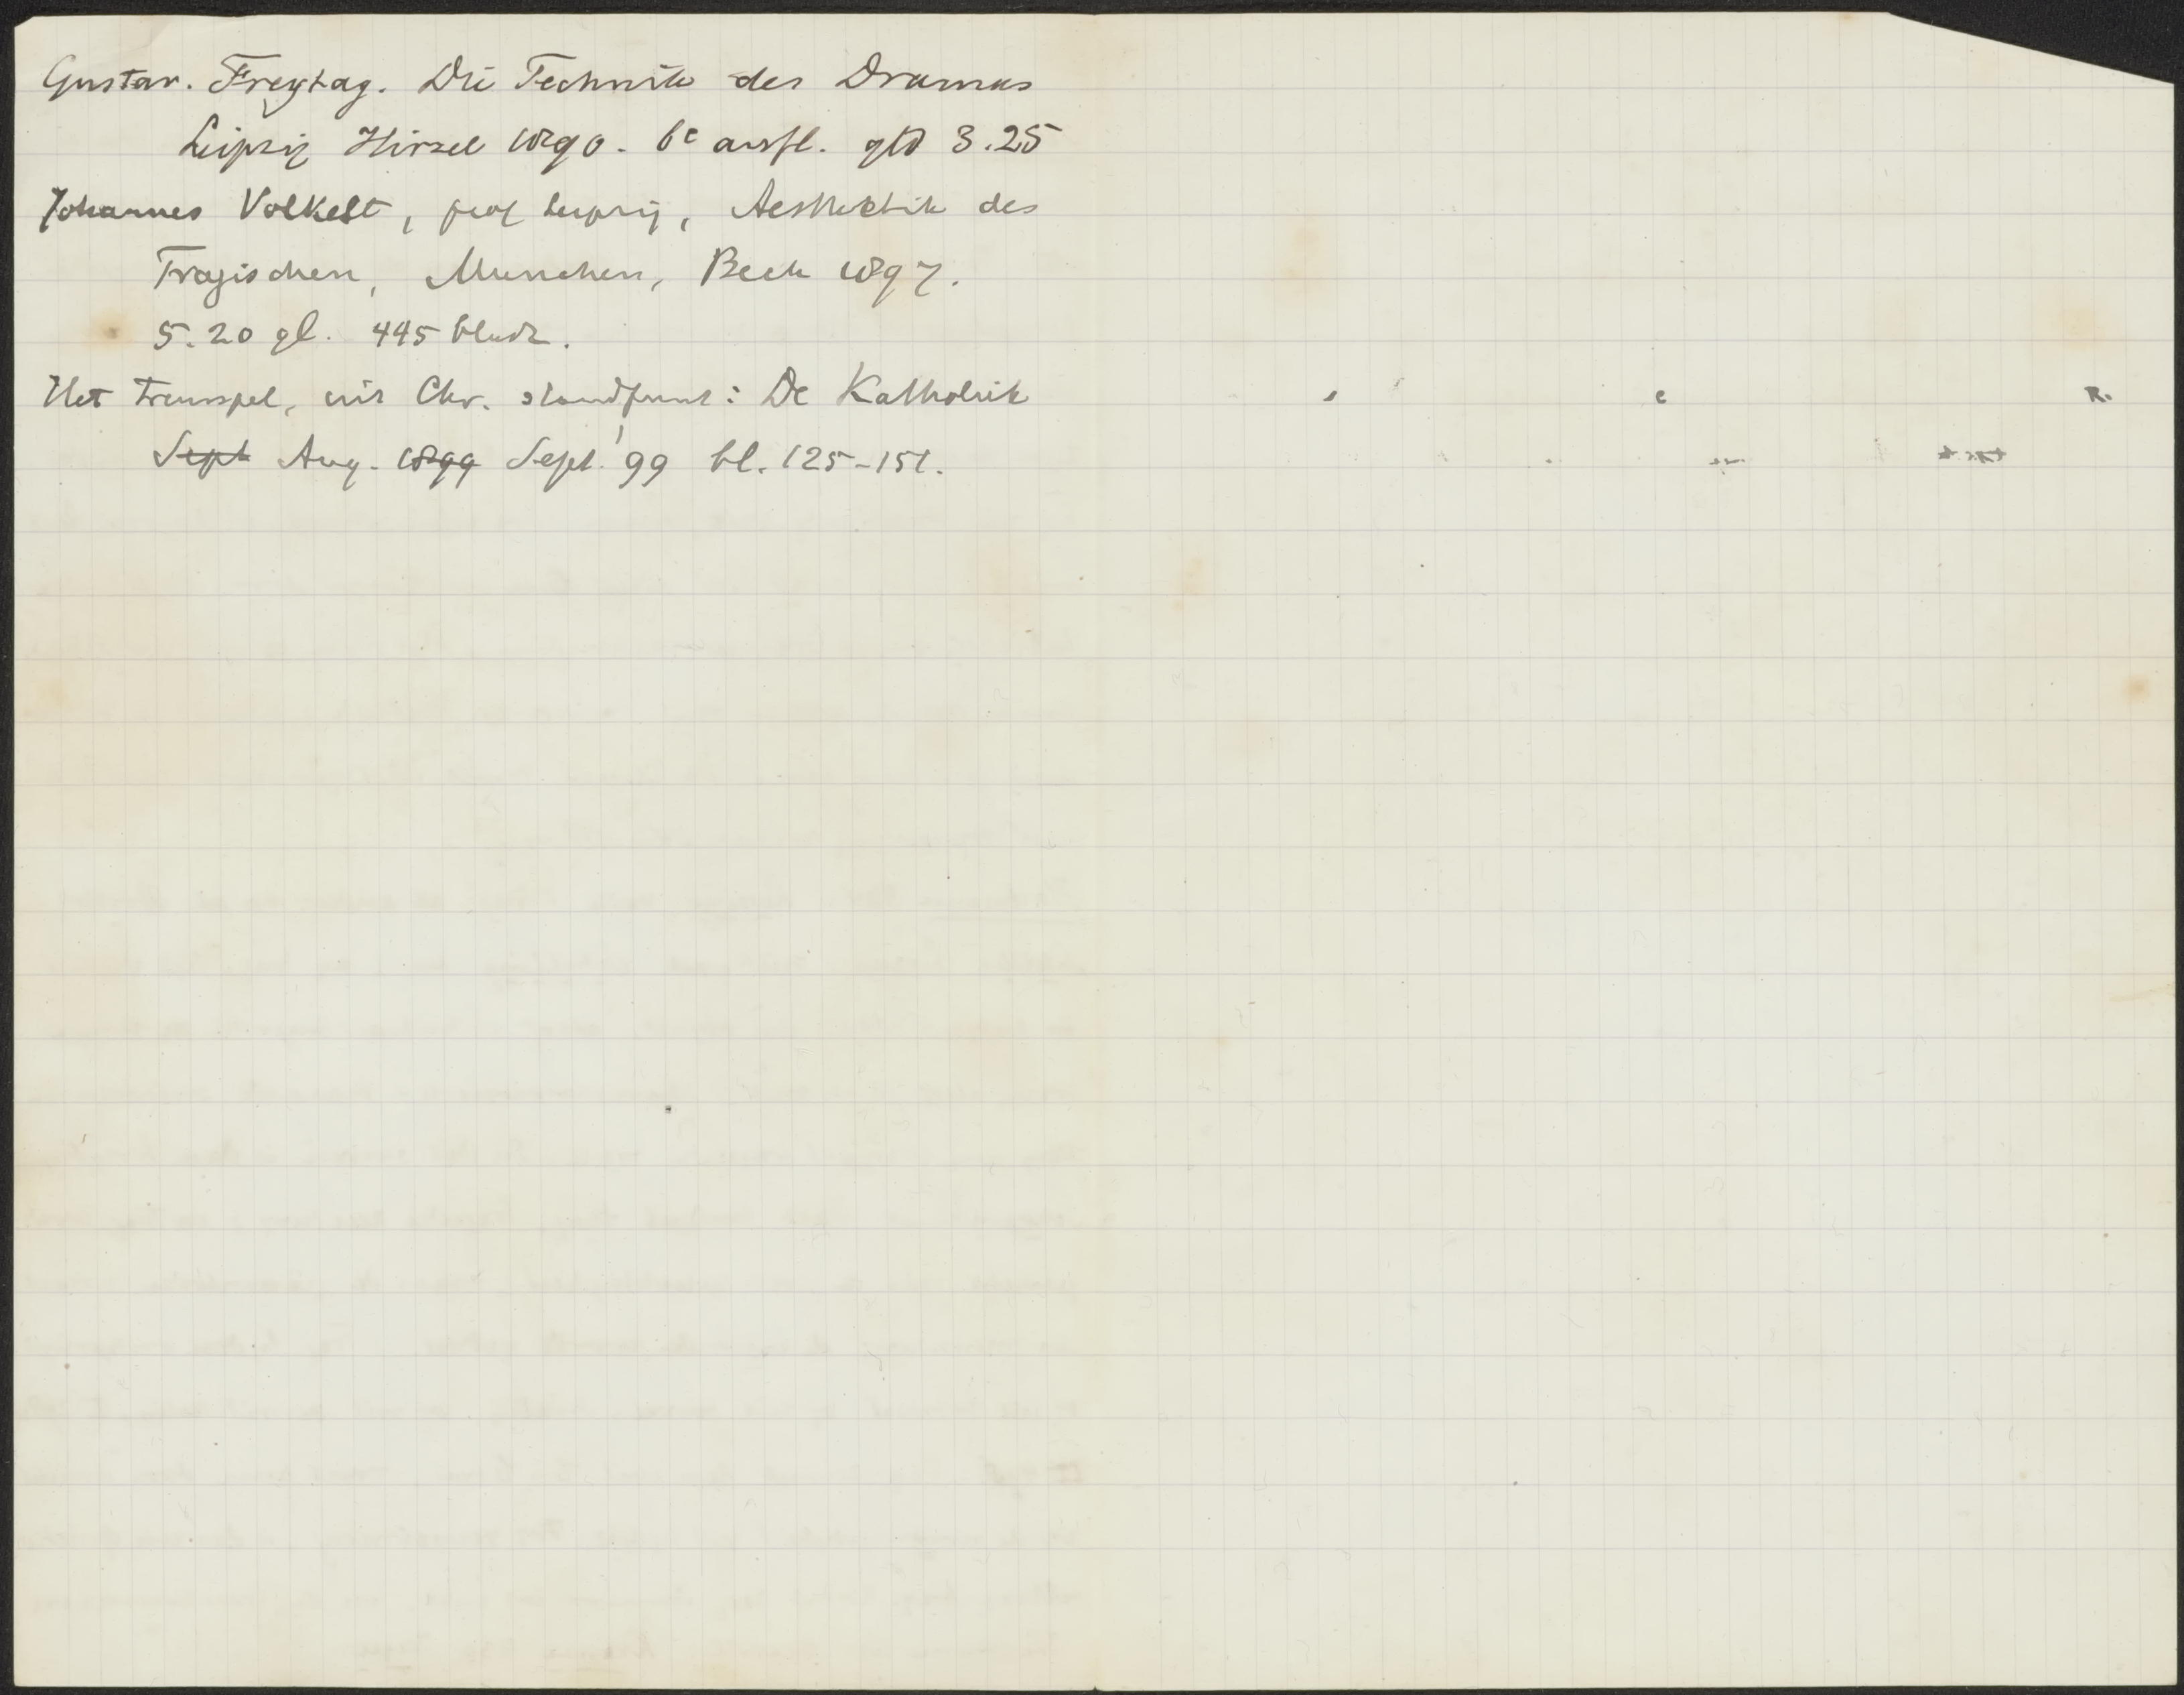 Gustav. Freytag. Die Technik des Dramas
Leipzig Hirzel 1890. 6e aufl. gld 3.25
Johannes Volkelt, prof Leipzig, Aesthetik des
Tragischen, Munchen, Beck 1897.
5.20 gl. 445 bladz.
Het treurspel, uit Chr. standpunt: De Katholiek
Sept Aug. 1899 Sept. '99 bl. 125-151.